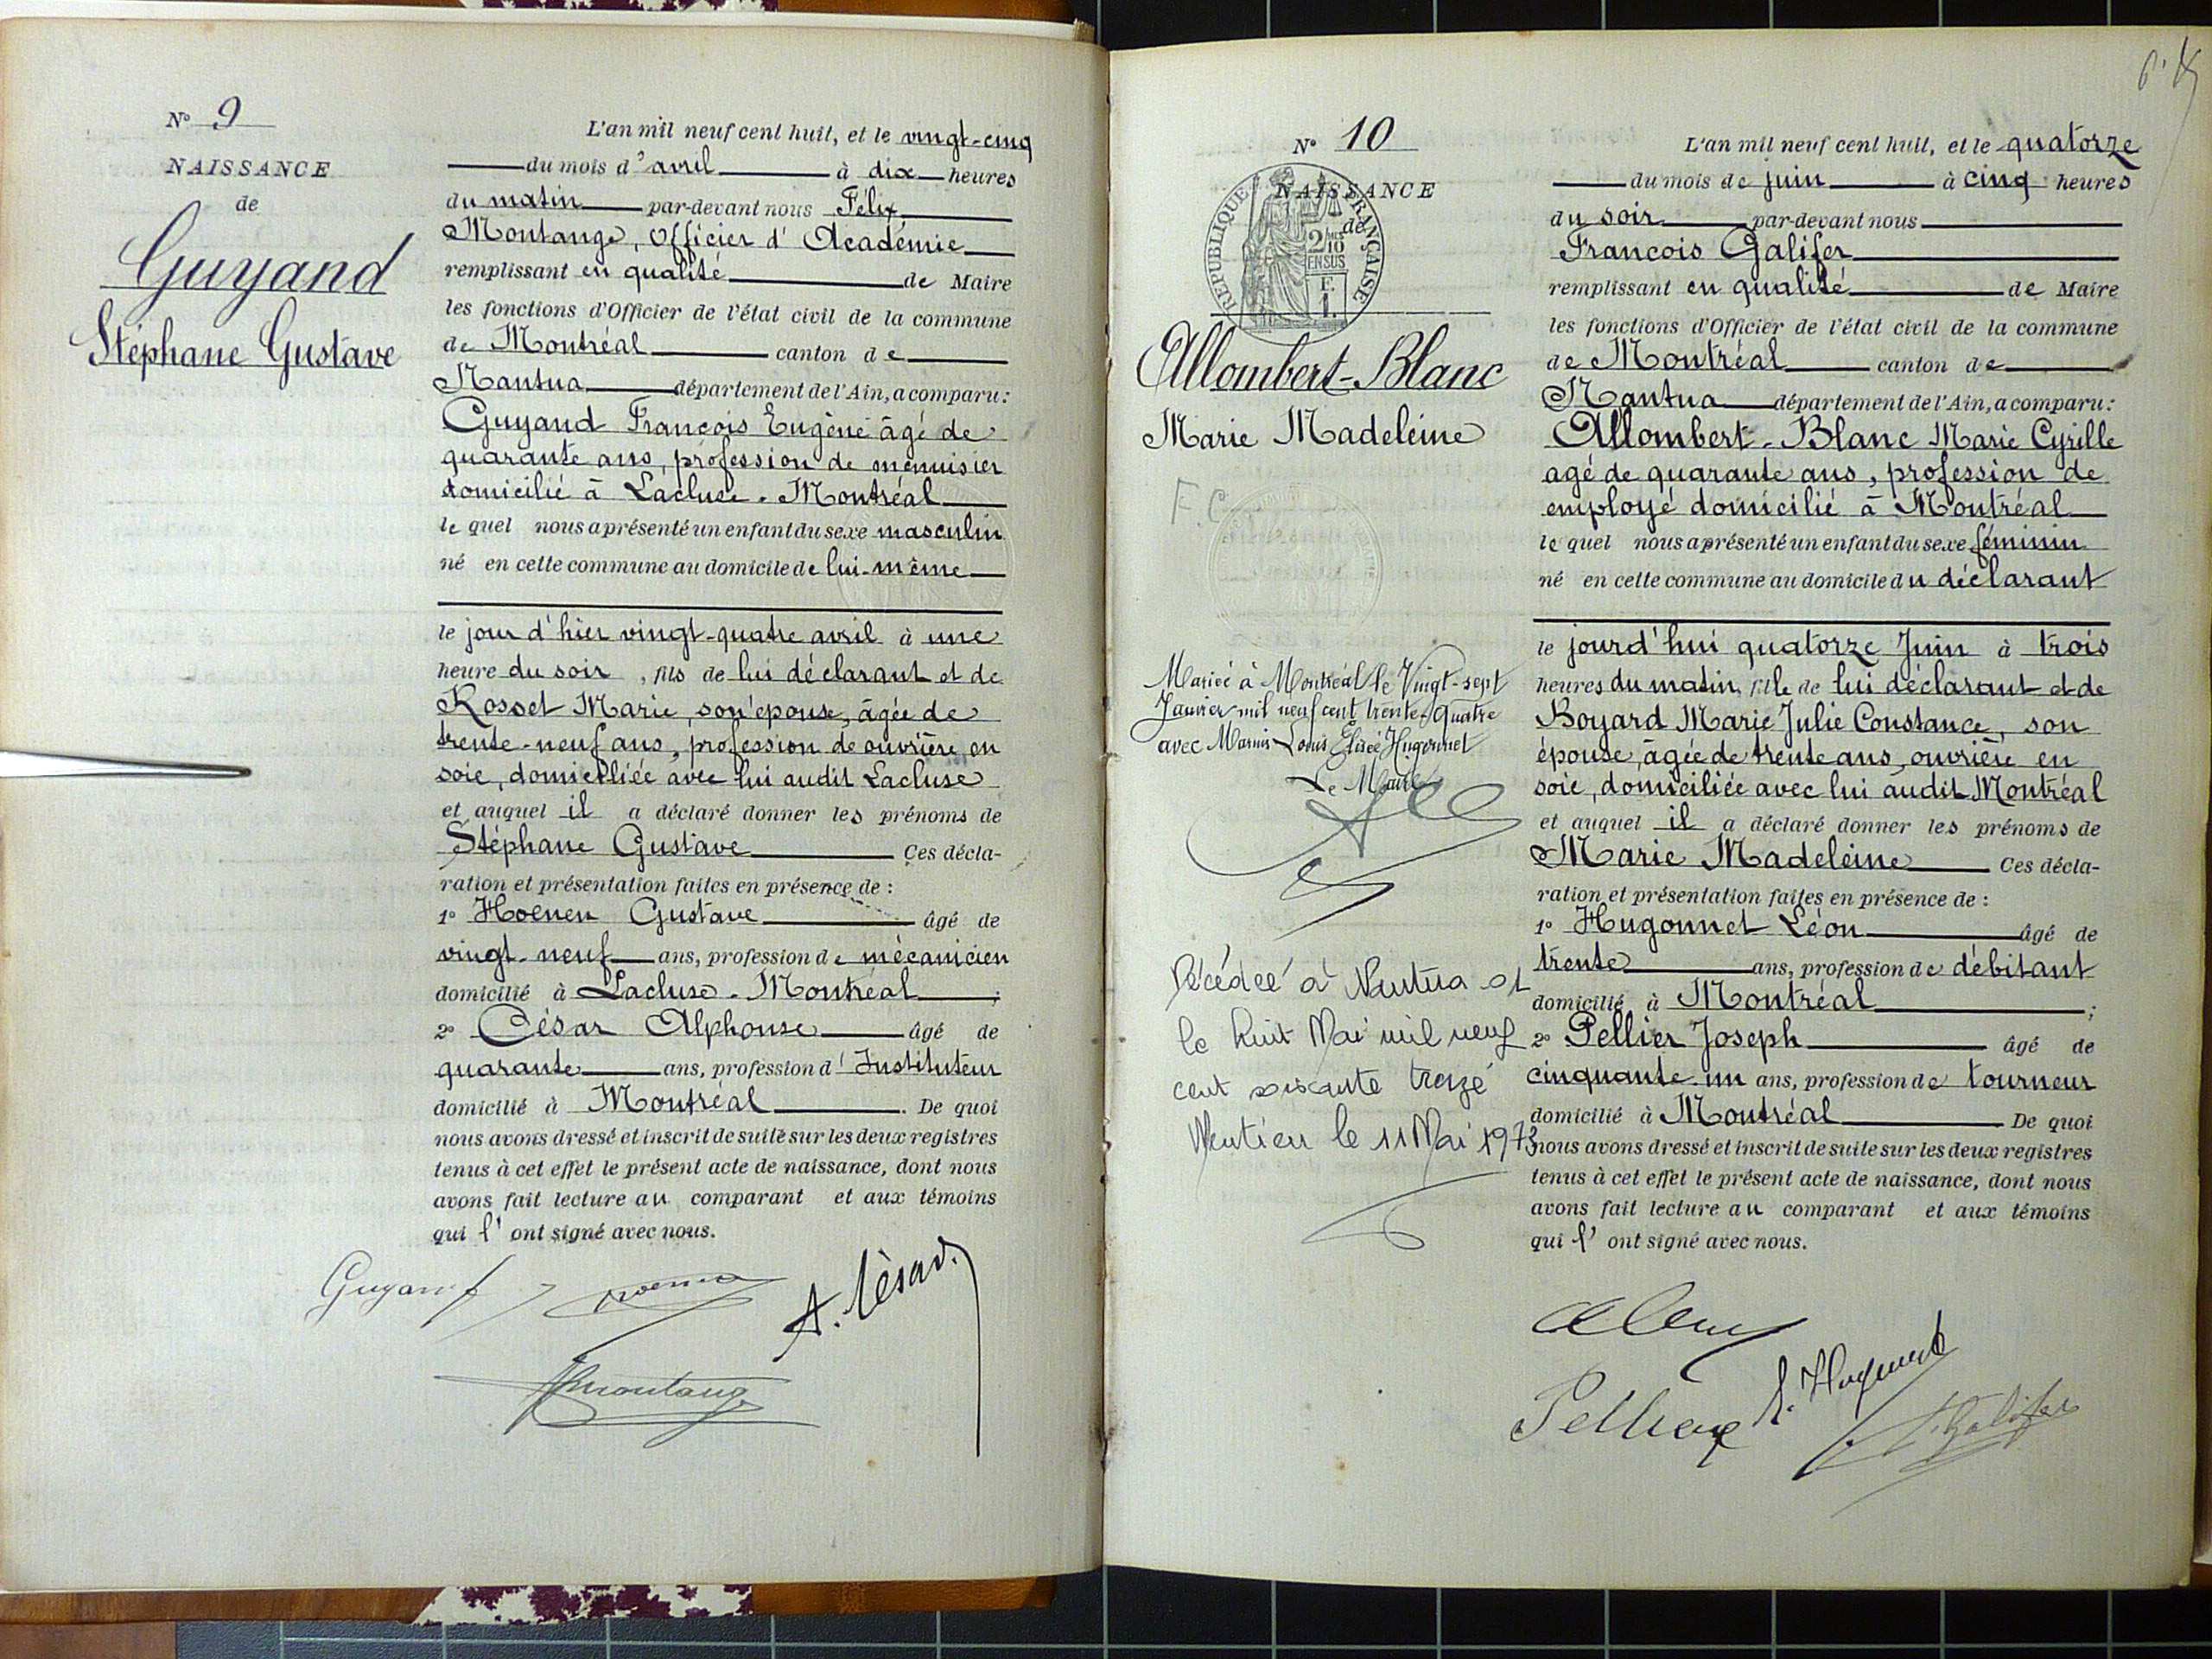 N° 9
NAISSANCE
de
Guyand
Stéphane Gustave
L'an mil neuf cent huit, et le vingt-cinq
du mois d'avril à dix heures
du matin par-devant nous Félix
Montange, Officier d'Académie
remplissant en qualité de Maire
les fonctions d'Officier de l'état civil de la commune
de Montréal canton de
Nantua département de l'Ain, a comparu:
Guyand François Eugène âgé de
quarante ans, profession de menuisier
domicilié à Lacluse. Montréal
le quel nous a présenté un enfant du sexe masculin
né en cette commune au domicile de lui-même
le jour d'hier vingt-quatre avril à une
heure du soir, fils de lui déclarant et de
Rosset Marie, son épouse, âgée de
trente-neuf ans, profession de ouvrière en
soie, domiciliée avec lui audit Lacluse
et auquel il a déclaré donner les prénoms de
Stéphane Gustave Ces décla-
ration et présentation faites en présence de :
1° Hoenen Gustave âgé de
vingt-neuf ans, profession de mécanicien
domicilié à Lacluse. Montréal ;
2° César Alphonse âgé de
quarante ans, profession d'Instituteur
domicilié à Montréal. De quoi
nous avons dressé et inscrit de suite sur les deux registres
tenus à cet effet le présent acte de naissance, dont nous
avons fait lecture au comparant et aux témoins
qui l'ont signé avec nous.
Guyand
A. César
N° 10
NAISSANCE
de
RÉPUBLIQUE FRANÇAISE
2/10
EN SUS
Allombert-Blanc
Marie Madeleine
F.C
Mariée à Montréal le Vingt-sept
Janvier mil neuf cent trente-quatre
avec Marius Louis Elisée Hugonnet
Le Maire
Décédée à Nantua 01
le huit Mai mil neuf
cent soixante treize
le 11 Mai 1973
L'an mil neuf cent huit, et le quatorze
du mois de juin à cinq heures
du soir par-devant nous
François Galifer
remplissant en qualité de Maire
les fonctions d'Officier de l'état civil de la commune
de Montréal canton de
Nantua département de l'Ain, a comparu:
Allombert-Blanc Marie Cyrille
agé de quarante ans, profession de
employé domicilié à Montréal
le quel nous a présenté un enfant du sexe féminin
né en cette commune au domicile du déclarant
le jourd'hui quatorze Juin à trois
heures du matin, fille de lui déclarant et de
Boyard Marie Julie Constance, son
épouse, âgée de trente ans, ouvrière en
soie, domiciliée avec lui audit Montréal
et auquel il a déclaré donner les prénoms de
Marie Madeleine Ces décla-
ration et présentation faites en présence de :
1° Hugonnet Léon âgé de
trente ans, profession de débitant
domicilié à Montréal ;
2° Pellier Joseph âgé de
cinquante-un ans, profession de tourneur
domicilié à Montréal De quoi
nous avons dressé et inscrit de suite sur les deux registres
tenus à cet effet le présent acte de naissance, dont nous
avons fait lecture au comparant et aux témoins
qui l'ont signé avec nous.